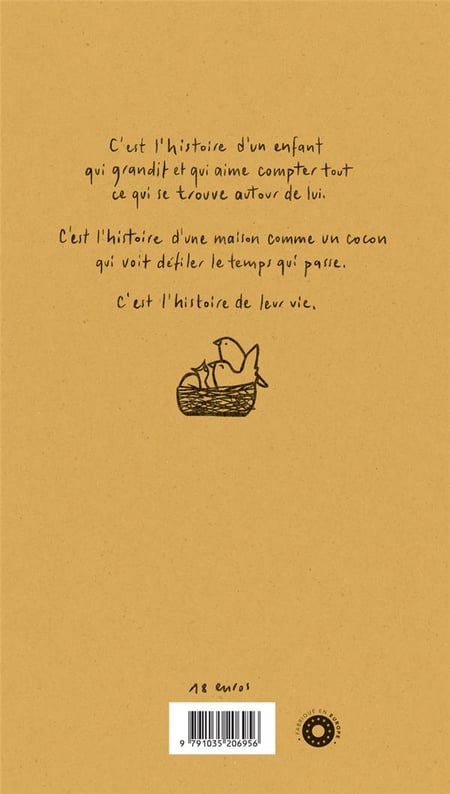 C'est l'histoire d'un enfant
qui grandit et qui aime compter tout
ce qui se trouve autour de lui.
C'est l'histoire d'une maison comme un cocon
qui voit défiler le temps qui passe.
C'est l'histoire de leur vie.
18 euros
9 791035 206956
FABRIQUÉ EN EUROPE